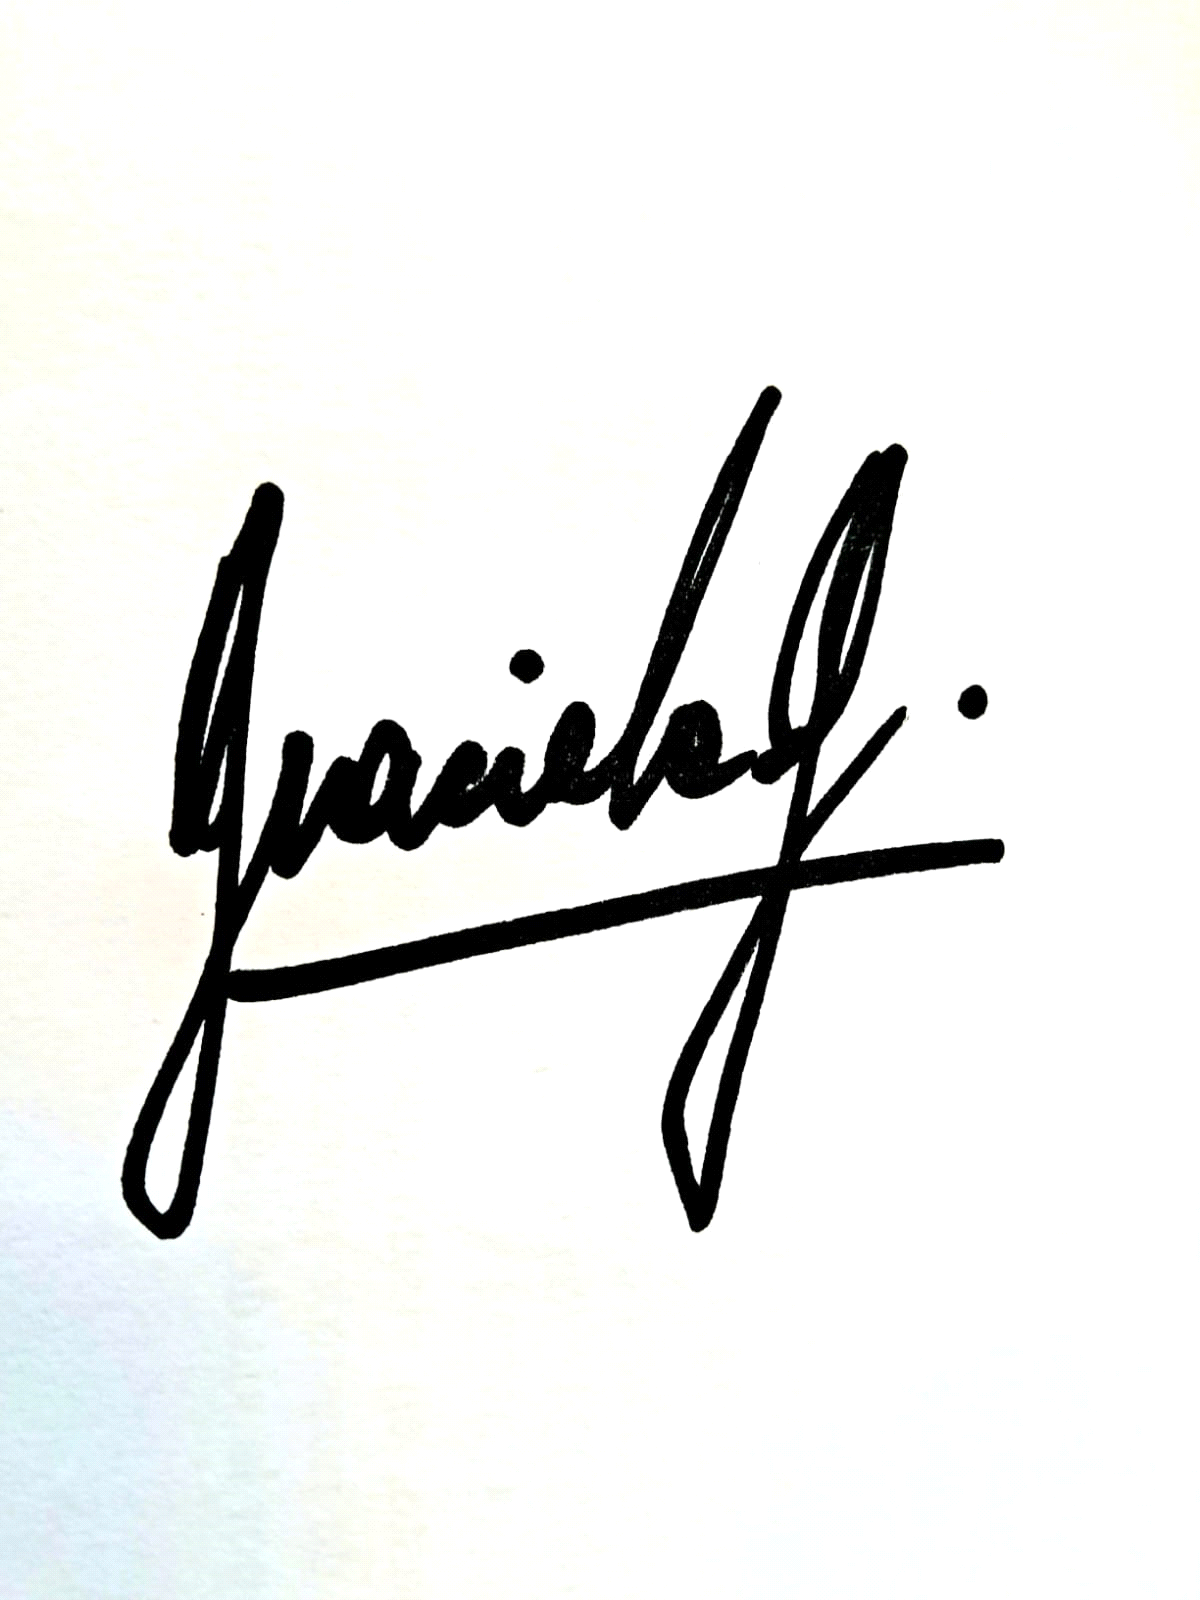 Graciela G.